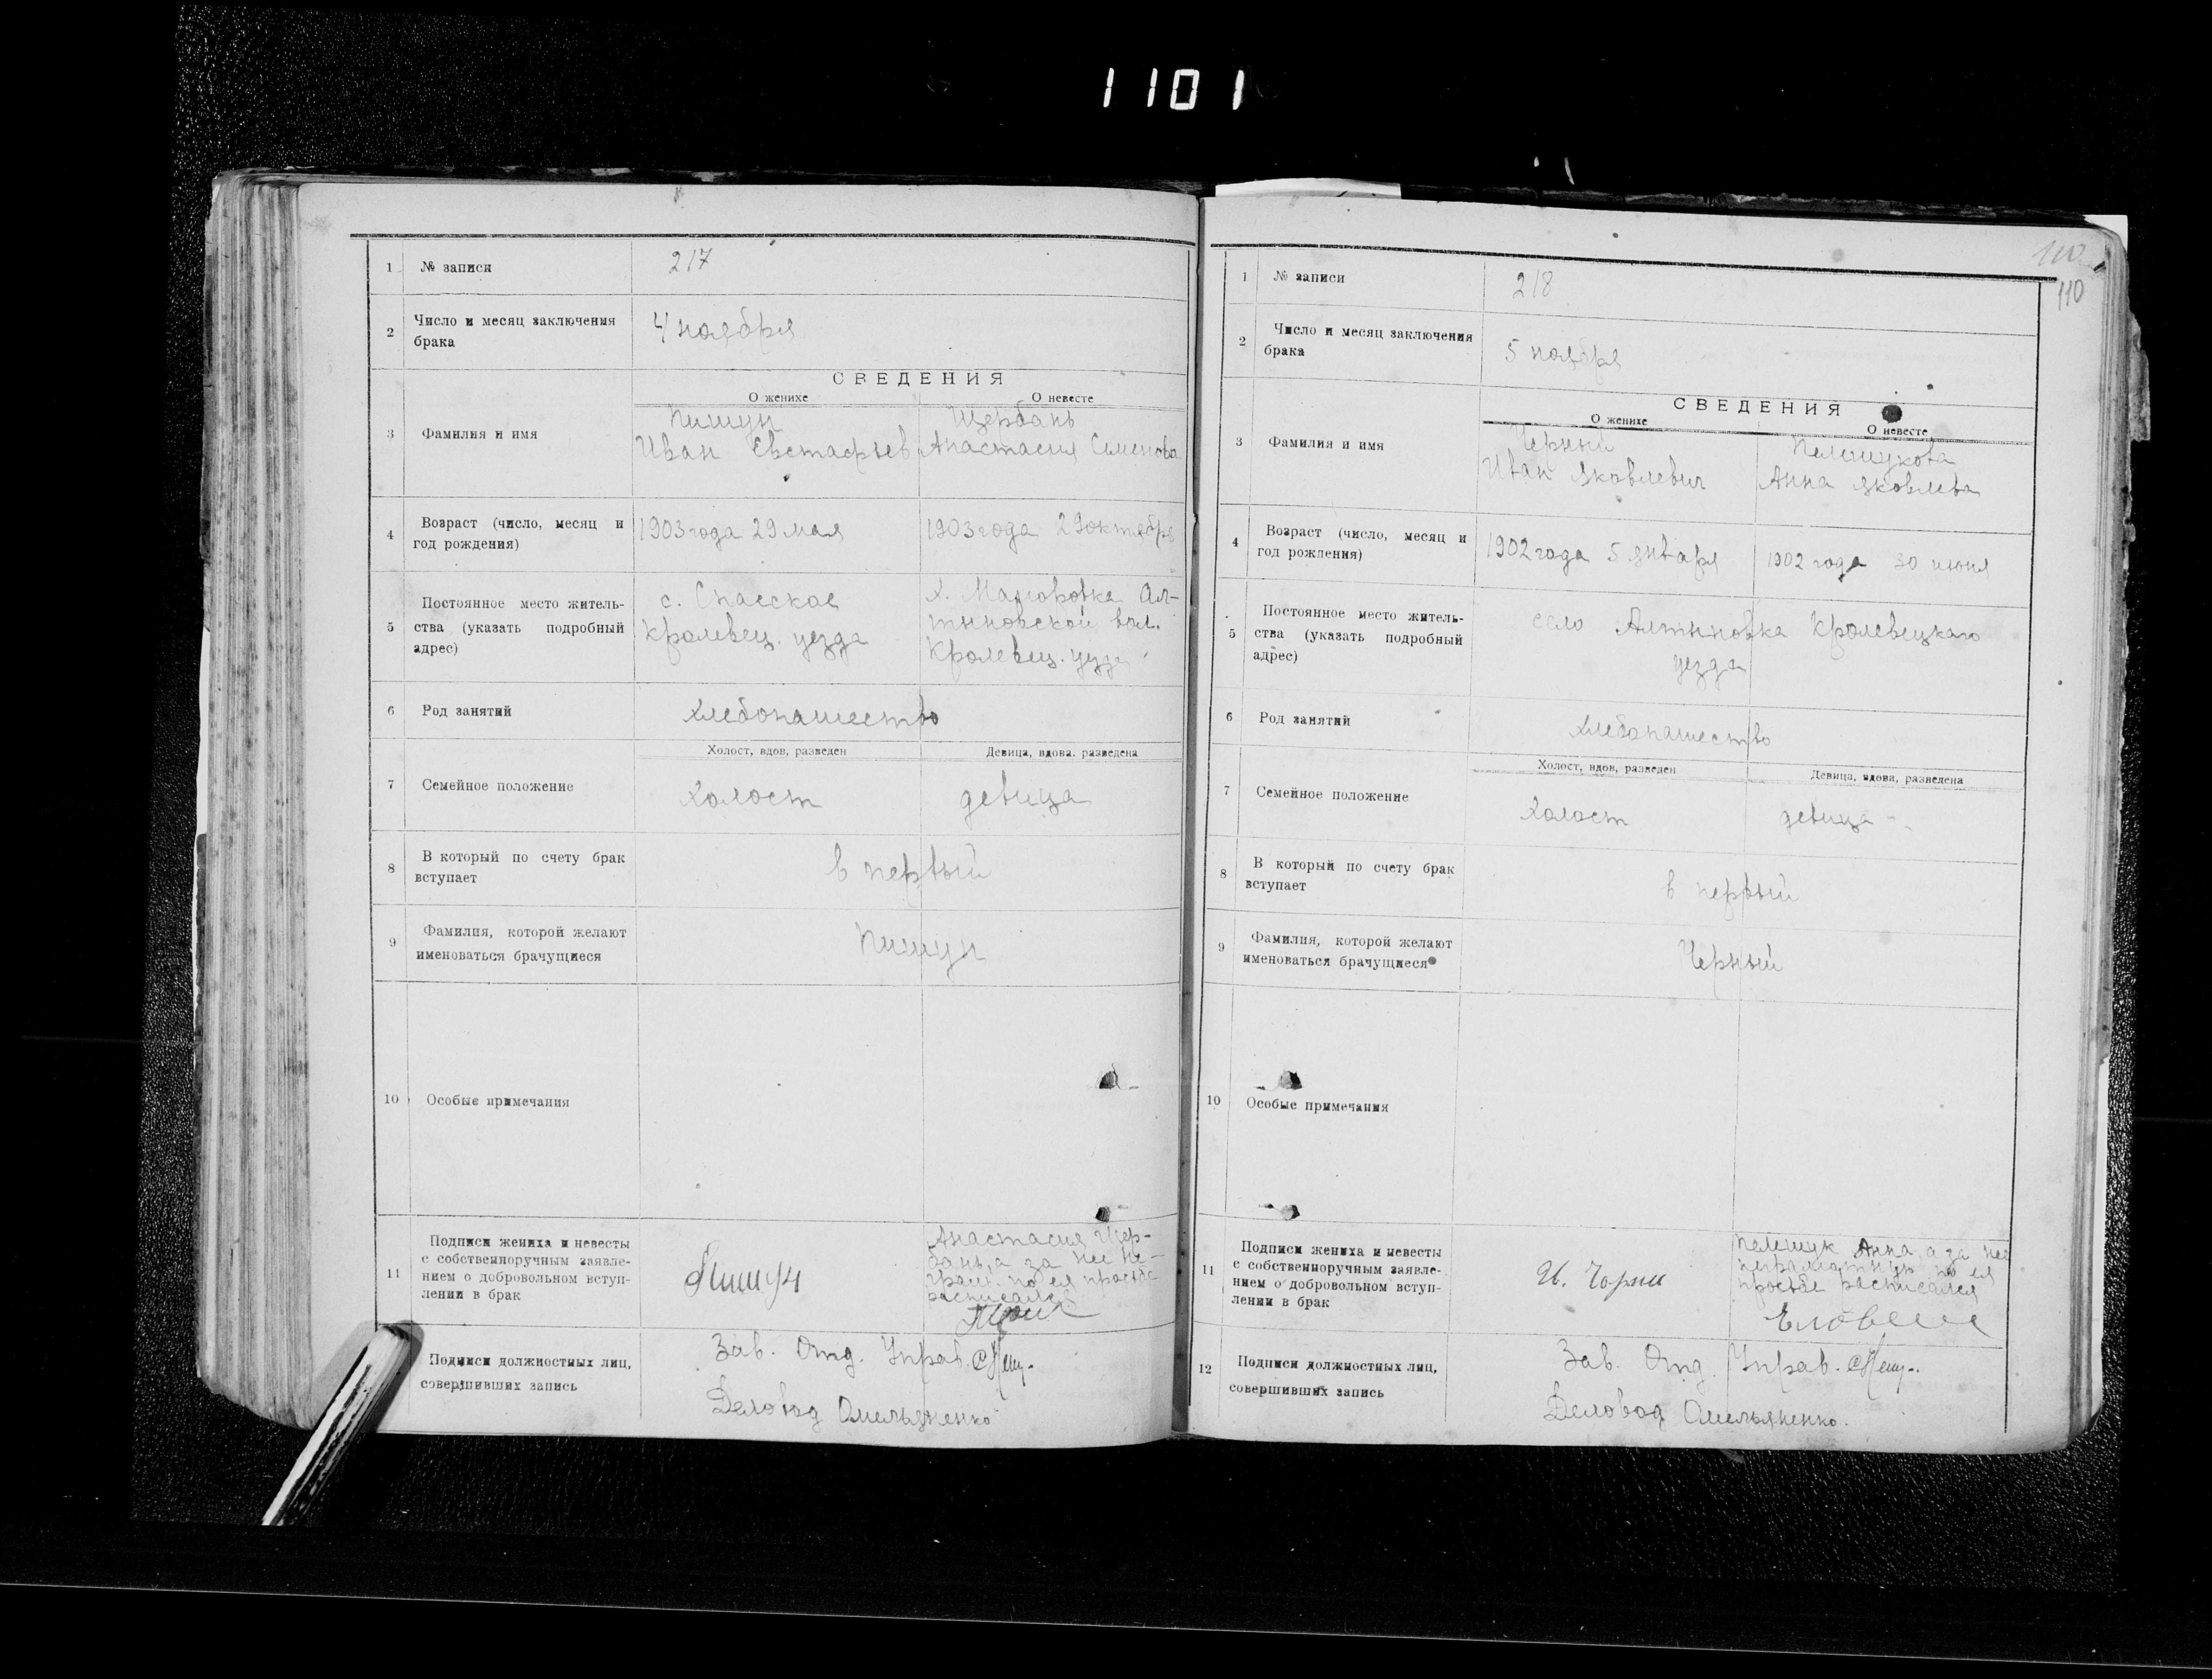 1101
1 № записи 217
2 Число и месяц заключения
брака
4 ноября
СВЕДЕНИЯ
О женихе О невесте
3 Фамилия и имя
Пишун Щербань
Иван Евстафьев Анастасия Семенова
4 Возраст (число, месяц и
год рождения)
1903 года 29 мая 1903 года 29 октября
5 Постоянное место житель-
ства (указать подробный
адрес)
с. Спасское
Кролевец. уезда
Х. Ал-
тыновской вол.
Кролевец. уезда
6 Род занятий хлебопашество
Холост, вдов, разведен Девица, вдова. разведена
7 Семейное положение холост девица
8 В который по счету брак
вступает
в первый
9 Фамилия, которой желают
именоваться брачущиеся
Пишун
10 Особые примечания
11 Подписи жениха и невесты
с собственноручным заявле-
нием о добровольном вступ-
лении в брак
Анастасия Щер-
бань, а за нее не-
грам. по ея просьбе
расписался
Подписи должностных лиц,
совершивших запись
Зав. Отд. Управ.
Деловод Омельяненко
110
110
1 № записи 218
2 Число и месяц заключения
брака
5 ноября
СВЕДЕНИЯ
О женихе О невесте
3 Фамилия и имя
Черный Пелешукова
Иван Яковлевич Анна Яковлева
4 Возраст (число, месяц и
год рождения)
1902 года 5 января 1902 года 30 июня
5 Постоянное место житель-
ства (указать подробный
адрес)
село Алтыновка Кролевецкаго
уезда
6 Род занятий хлебопашество
Холост, вдов, разведен Девица, вдова, разведена
7 Семейное положение холост девица
8 В который по счету брак
вступает
в первый
9 Фамилия, которой желают
именоваться брачущиеся
Черный
10 Особые примечания
11 Подписи жениха и невесты
с собственноручным заявле-
нием о добровольном вступ-
лении в брак
И.
Пелешук Анна, а за нее
неграмотную по ея
просьбе расписался
12 Подписи должностных лиц,
совершивших запись
Зав. Отд. Управ.
Деловод Омельяненко.